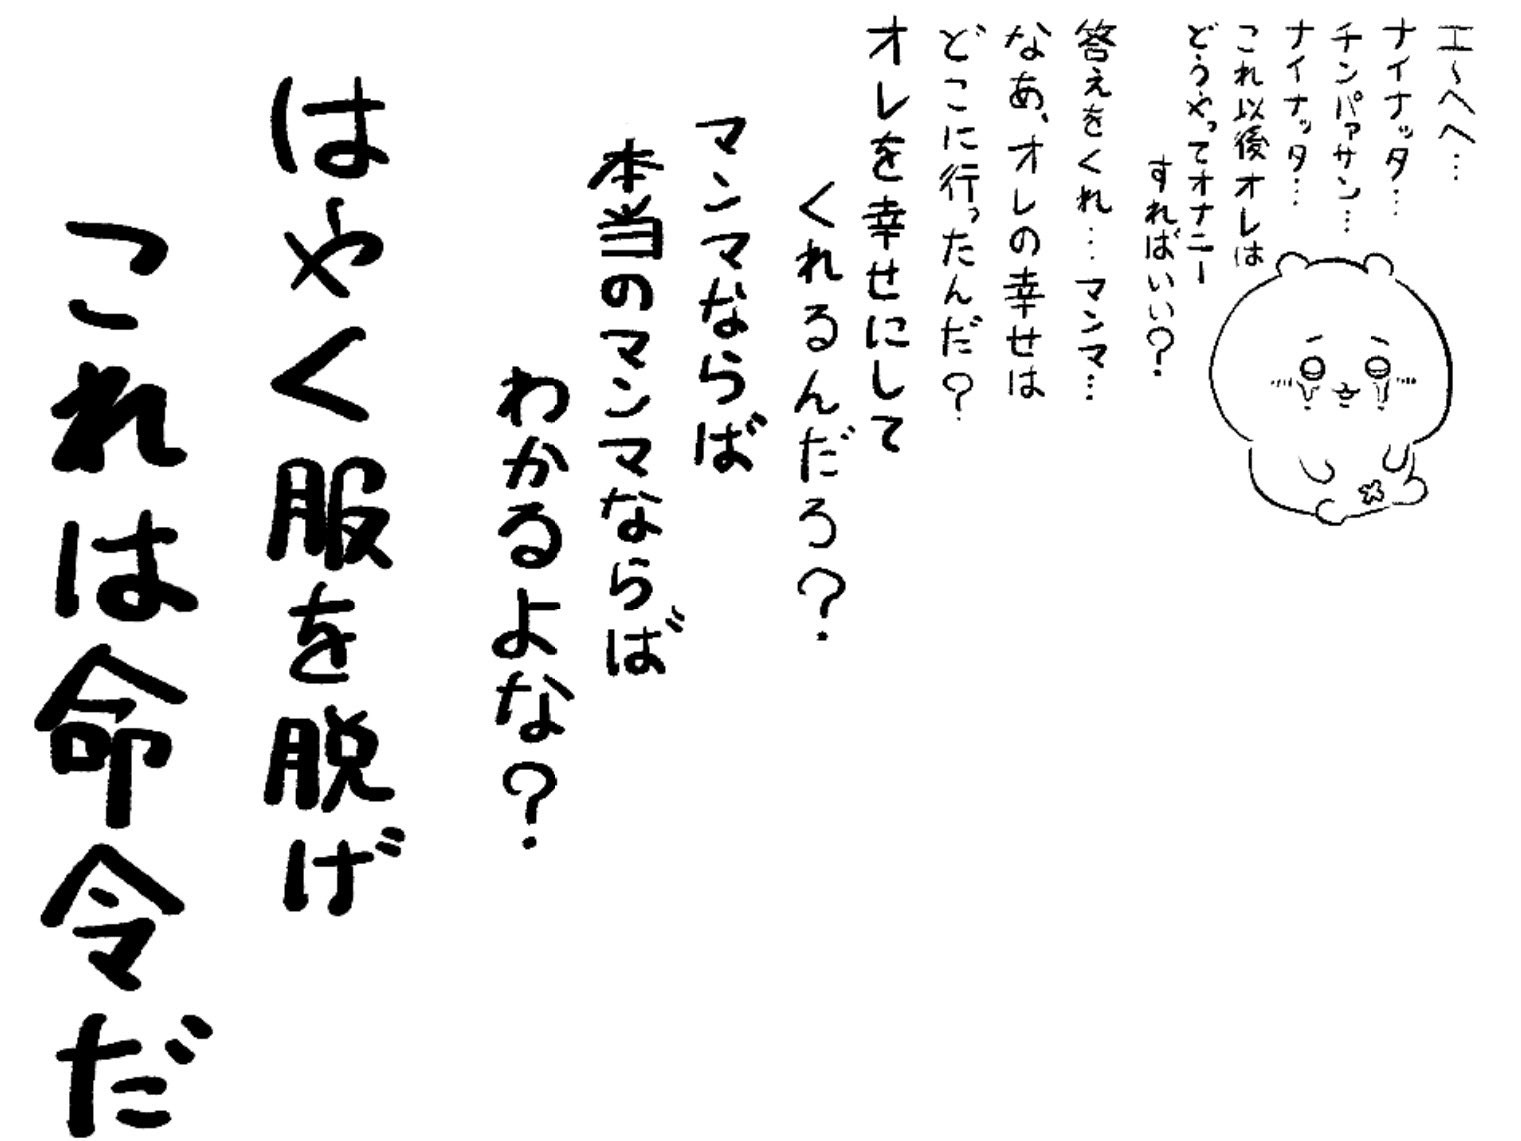 エ～ヘヘ…
ナイナッタ…
チンパァサン…
ナイナッタ…
これ以後オレは
どうやってオナニー
すればいい？
答えをくれ…マンマ…
なあ、オレの幸せは
どこに行ったんだ？
オレを幸せにして
くれるんだろう？
マンマならば
本当のマンマならば
わかるよな？
はやく服を脱げ
これは命令だ